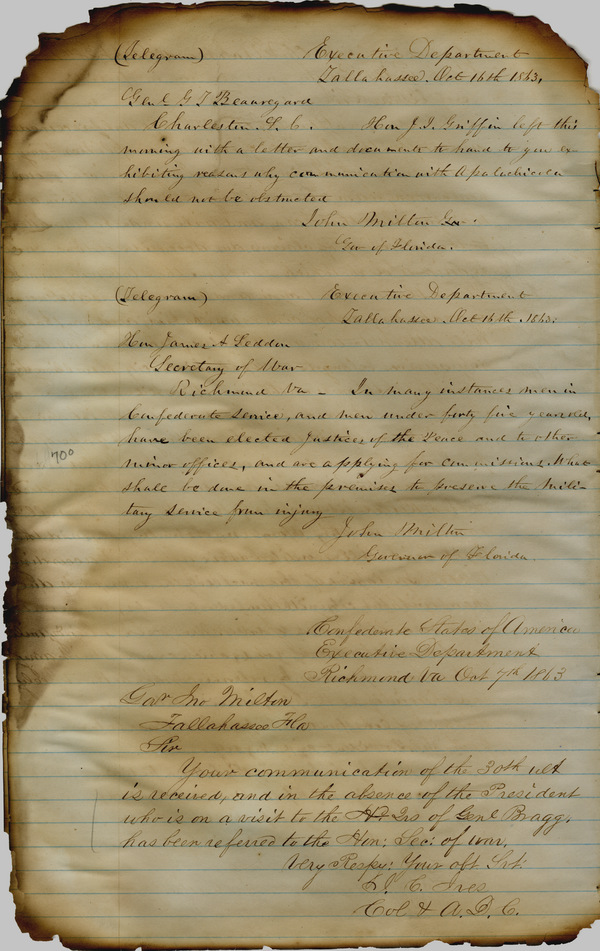 (Telegram) Executive Department
Tallahassee. Oct 16th 1863.
Genl G T Beauregard
Charleston. S. C. Hon J. I. Griffin left this
morning with a letter and documents to hand to you ex-
hibiting reasons why communication with Apalachicola
should not be obstructed
John Milton
Gov of Florida.
(Telegram) Executive Department
Tallahassee. Oct 16th. 1863.
Hon James A Seddon
Secretary of War
Richmond Va – In many instances men in
Confederate service, and men under forty five years old,
have been elected Justices of the Peace and to other
minor offices, and are applying for commissions. What
shall be done in the premises to preserve the mili-
tary service from injury
John Milton
Governor of Florida
700
Confederate States of America
Executive Department
Richmond Va Oct 7th 1863
Govr Jno Milton
Tallahassee Fla
Sir
Your communication of the 30th ult
is received, and in the absence of the President
who is on a visit to the Hd Qrs of Genl Bragg,
has been referred to the Hon: Sec: of war,
Very Respy: Your obt Svt:
J. C. Ives
Col & A. D. C.